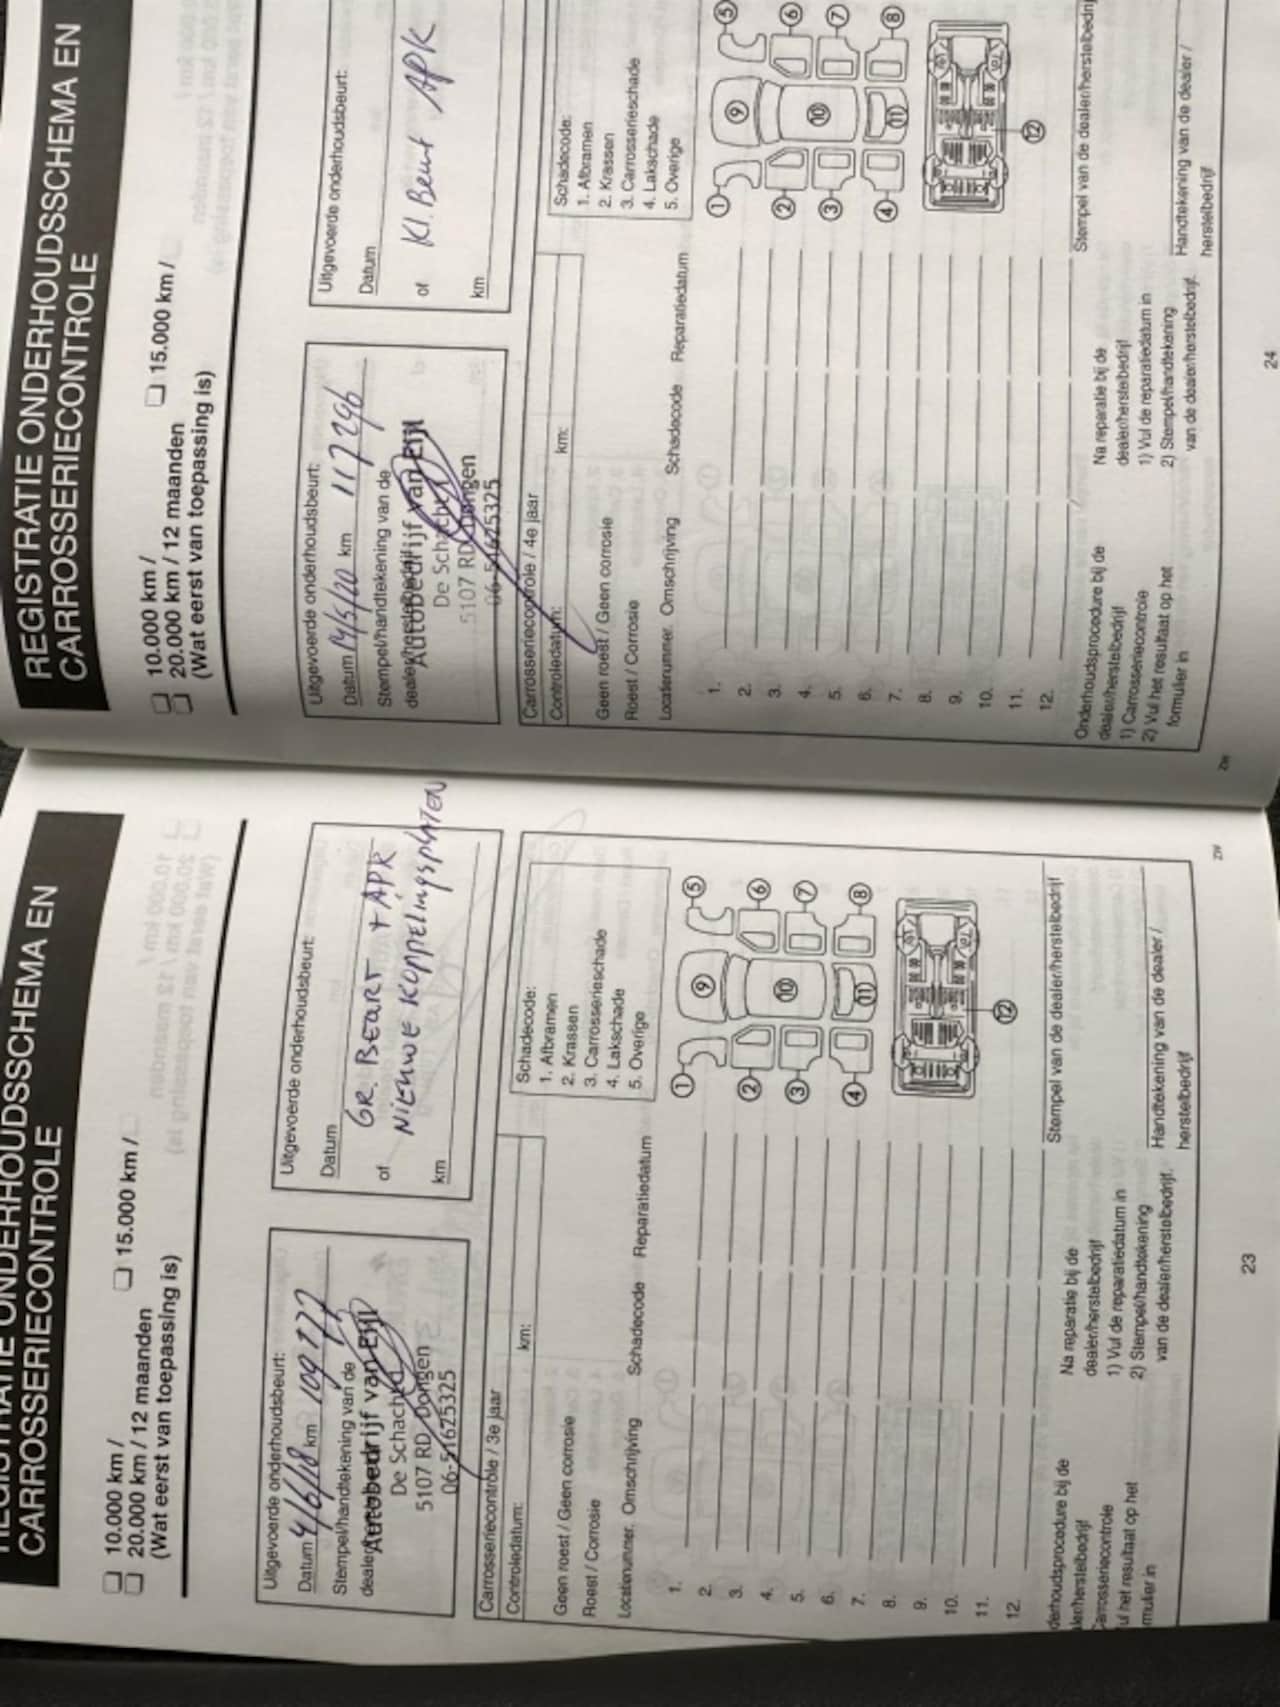 REGISTRATIE ONDERHOUDSSCHEMA EN
CARROSSERIECONTROLE
10.000 km /
20.000 km / 12 maanden
15.000 km /
(Wat eerst van toepassing is)
Uitgevoerde onderhoudsbeurt:
Datum 4/6/18 km 109277
Stempel/handtekening van de
Autobedrijf van Eijl
De Schacht
5107 RD Dongen
06-51625325
Uitgevoerde onderhoudsbeurt:
Datum
GR. BEURT + APK
of
NIEUWE KOPPELINGSPLATEN
km
Carrosseriecontrole / 3e jaar
Controledatum:
km:
Geen roest / Geen corrosie
Roest / Corrosie
Locatienummer. Omschrijving Schadecode Reparatiedatum
1.
2.
3.
4.
5.
6.
7.
8.
9.
10.
11.
12.
Schadecode:
1. Afbramen
2. Krassen
3. Carrosserieschade
4. Lakschade
5. Overige
1
2
3
4
5
6
7
8
9
10
11
12
derhoudsprocedure bij de
ler/herstelbedrijf
Carrosseriecontrole
ul het resultaat op het
rmulier in
Na reparatie bij de
dealer/herstelbedrijf
1) Vul de reparatiedatum in
2) Stempel/handtekening
van de dealer/herstelbedrijf.
Stempel van de dealer/herstelbedrijf
Handtekening van de dealer /
herstelbedrijf
23
ZW
REGISTRATIE ONDERHOUDSSCHEMA EN
CARROSSERIECONTROLE
10.000 km /
20.000 km / 12 maanden
15.000 km /
(Wat eerst van toepassing is)
Uitgevoerde onderhoudsbeurt:
Datum 14/5/20 km 117296
Stempel/handtekening van de
dealer/herstelbedrijf
Autobedrijf van Eijl
De Schacht
5107 RD Dongen
06-51625325
Uitgevoerde onderhoudsbeurt:
Datum
of
Kl. Beurt APK
km
Carrosseriecontrole / 4e jaar
Controledatum:
km:
Geen roest / Geen corrosie
Roest / Corrosie
Locatienummer. Omschrijving Schadecode Reparatiedatum
1.
2.
3.
4.
5.
6.
7.
8.
9.
10.
11.
12.
Schadecode:
1. Afbramen
2. Krassen
3. Carrosserieschade
4. Lakschade
5. Overige
1
2
3
4
5
6
7
8
9
10
11
12
Onderhoudsprocedure bij de
dealer/herstelbedrijf
1) Carrosseriecontrole
2) Vul het resultaat op het
formulier in
Na reparatie bij de
dealer/herstelbedrijf
1) Vul de reparatiedatum in
2) Stempel/handtekening
van de dealer/herstelbedrijf.
Stempel van de dealer/herstelbedrij
Handtekening van de dealer /
herstelbedrijf
24
ZW